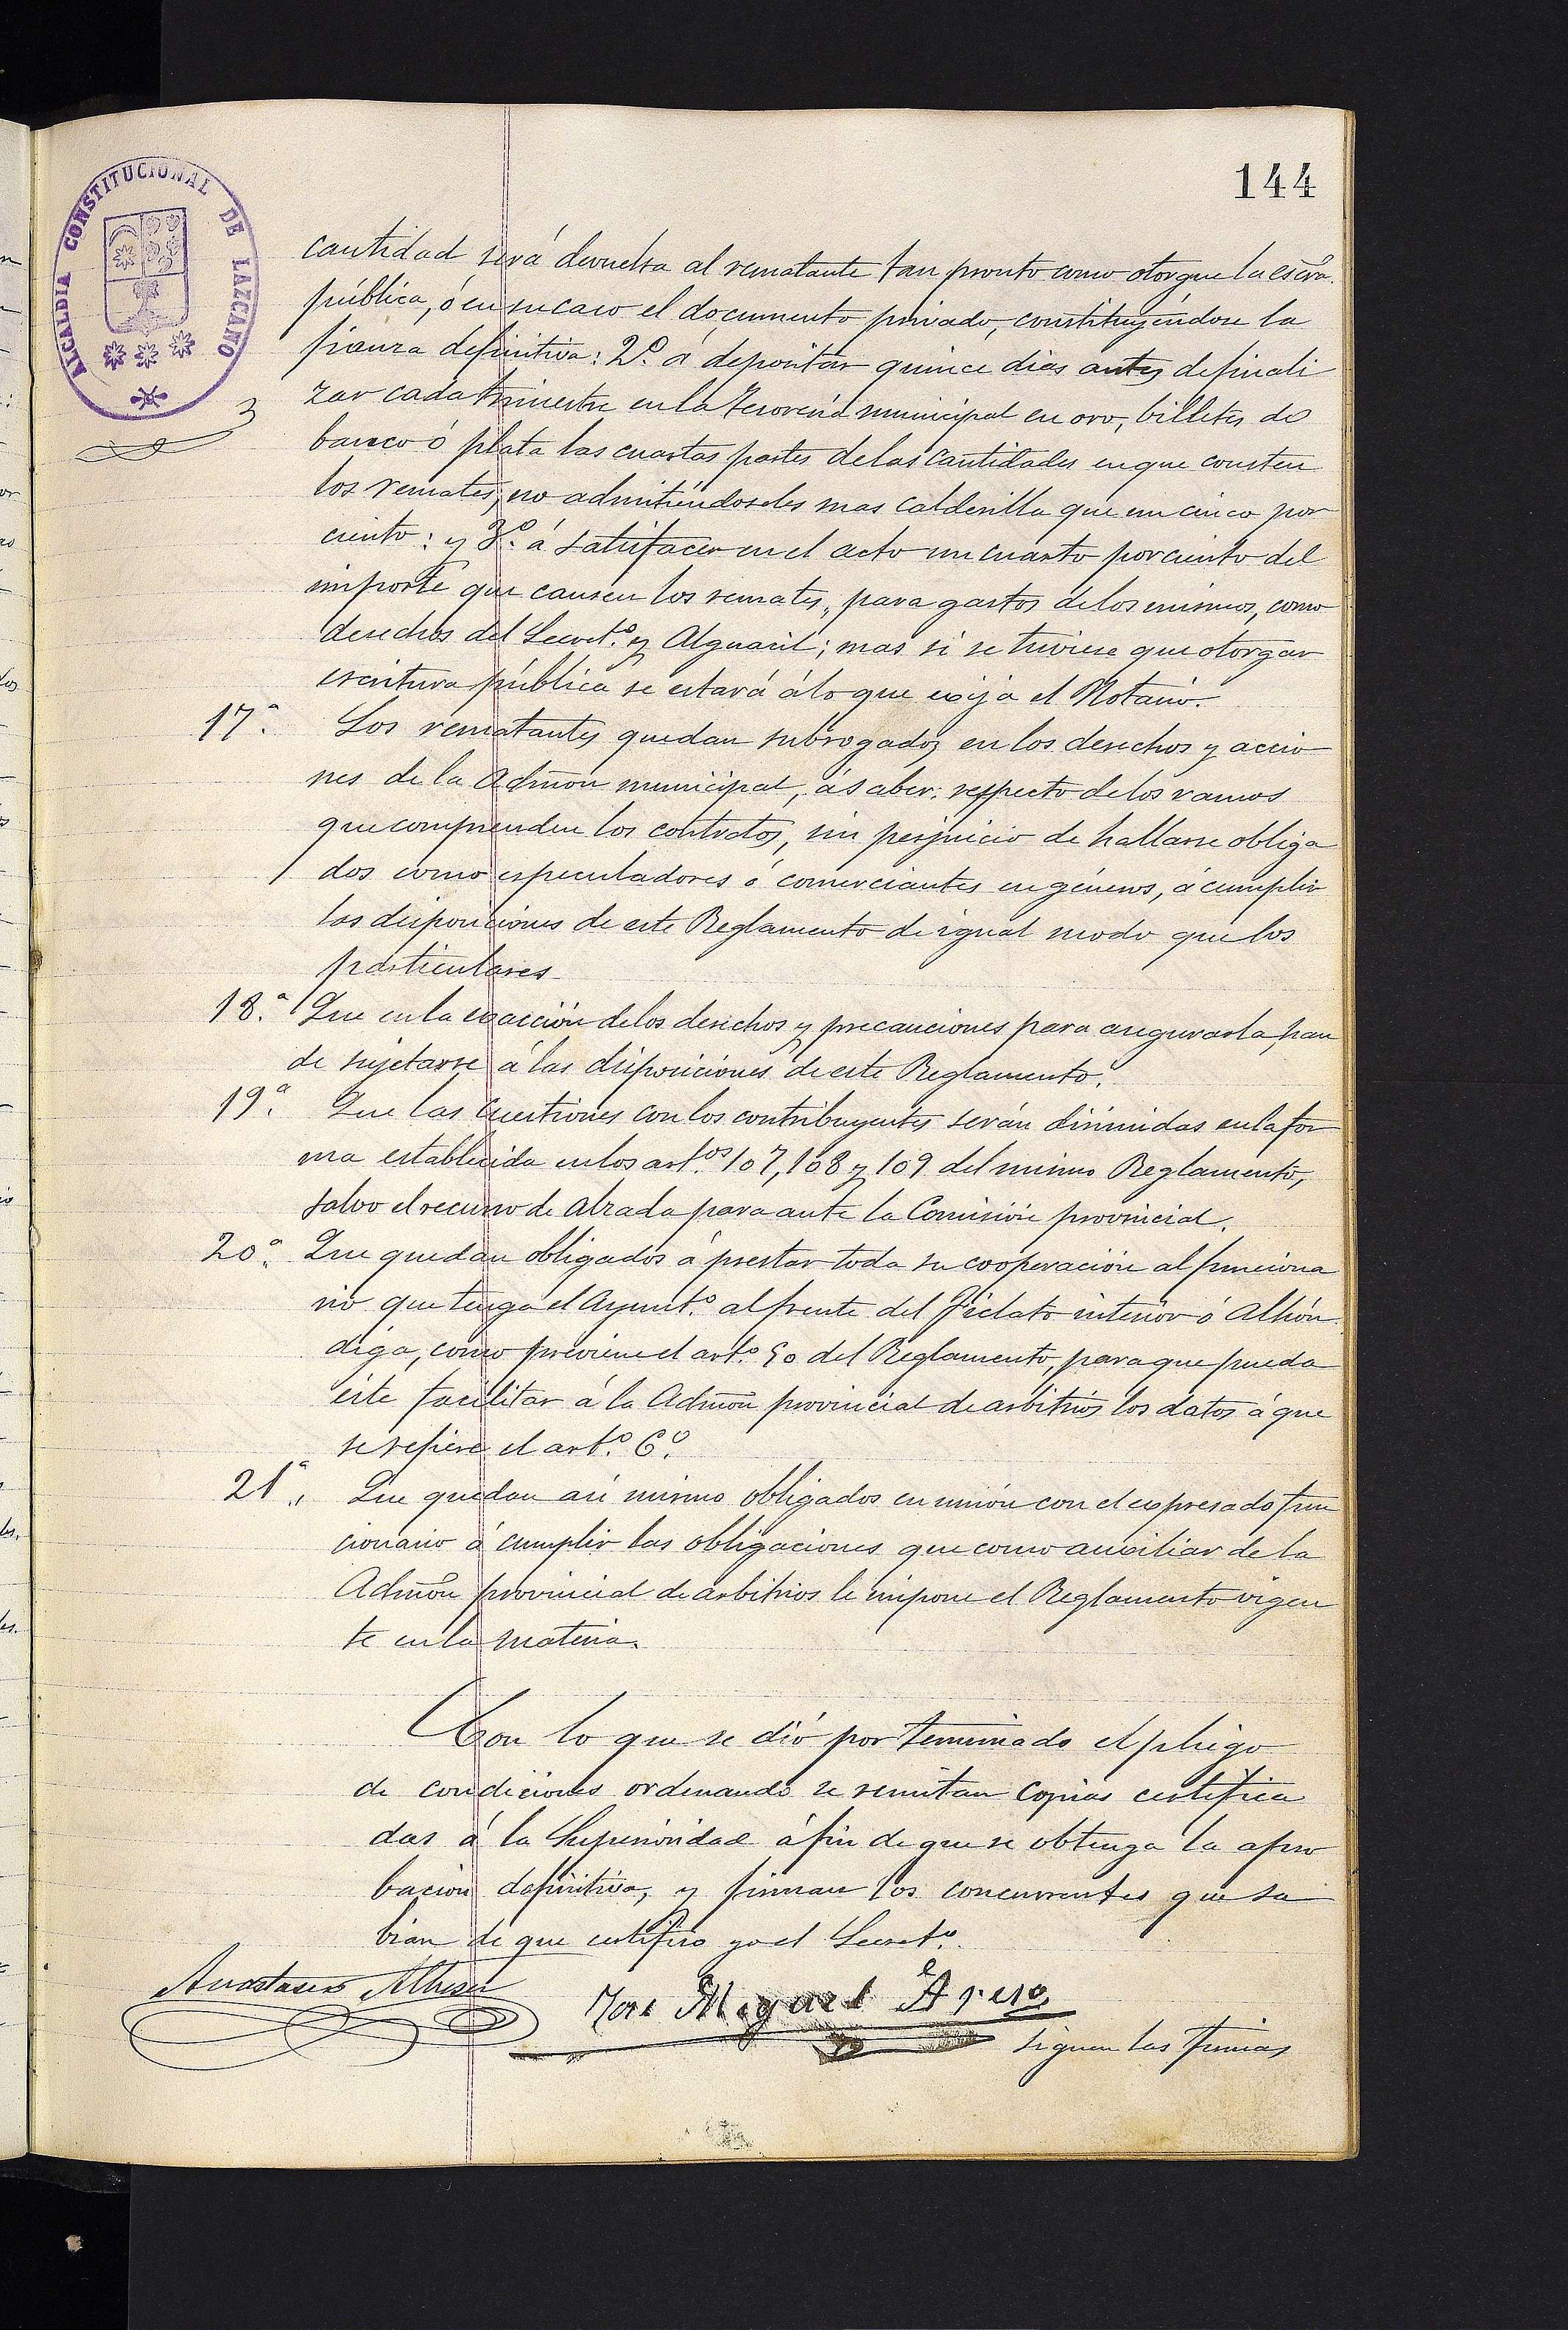 144
ALCALDIA CONSTITUCIONAL DE LAZCANO
cantidad será devuelta al rematante tan pronto como otorgue la escra.
pública, ó en su caso el documento privado, constituyéndose la
fianza definitiva: 2º. á depositar quince dias antes de finali
zar cada trimestre en la Tesorería municipal en oro, billetes de
banco ó plata las cuartas partes de las cantidades en que consten
los remates, no admitiéndoseles mas calderilla que un cinco por
ciento: y 3º. á satisfacer en el acto un cuarto por ciento del
importe que causen los remates, para gastos de los mismos, como
derechos del Secretº. y Alguacil; mas si se tuviese que otorgar
escritura pública se estará á lo que exija el Notario.
17ª. Los rematantes quedan subrogados en los derechos y accio
nes de la Admón municipal, á saber: respecto de los ramos
que comprenden los contratos, sin perjuicio de hallarse obliga
dos como especuladores ó comerciantes en géneros, á cumplir
las disposiciones de este Reglamento de igual modo que los
particulares.
18.ª Que en la exacción de los derechos y precauciones para asegurarla, han
de sujetarse á las disposiciones de este Reglamento.
19ª. Que las cuestiones con los contribuyentes serán dirimidas en la for
ma establecida en los art.os 107, 108 y 109 del mismo Reglamento,
salvo el recurso de alzada para ante la Comisión provincial.
20ª. Que quedan obligados á prestar toda su cooperación al funciona
rio que tenga el Ayuntº. al frente del Fielato interior ó Alhón
diga, como previene el artº. 50 del Reglamento, para que pueda
éste facilitar á la Admón provincial de arbitrios los datos á que
se refiere el artº. 6º.
21ª. Que quedan así mismo obligados en unión con el expresado fun
cionario á cumplir las obligaciones que como auxiliar de la
Admón provincial de arbitrios le impone el Reglamento vigen
te en la materia.
Con lo que se dió por terminado el pliego
de condiciones ordenando se remitan copias certifica
das á la Superioridad á fin de que se obtenga la apro
bación definitiva, y firman los concurrentes que sa
bian de que certifico yo el Secretº.
Anastasio
José Miguel
siguen las firmas